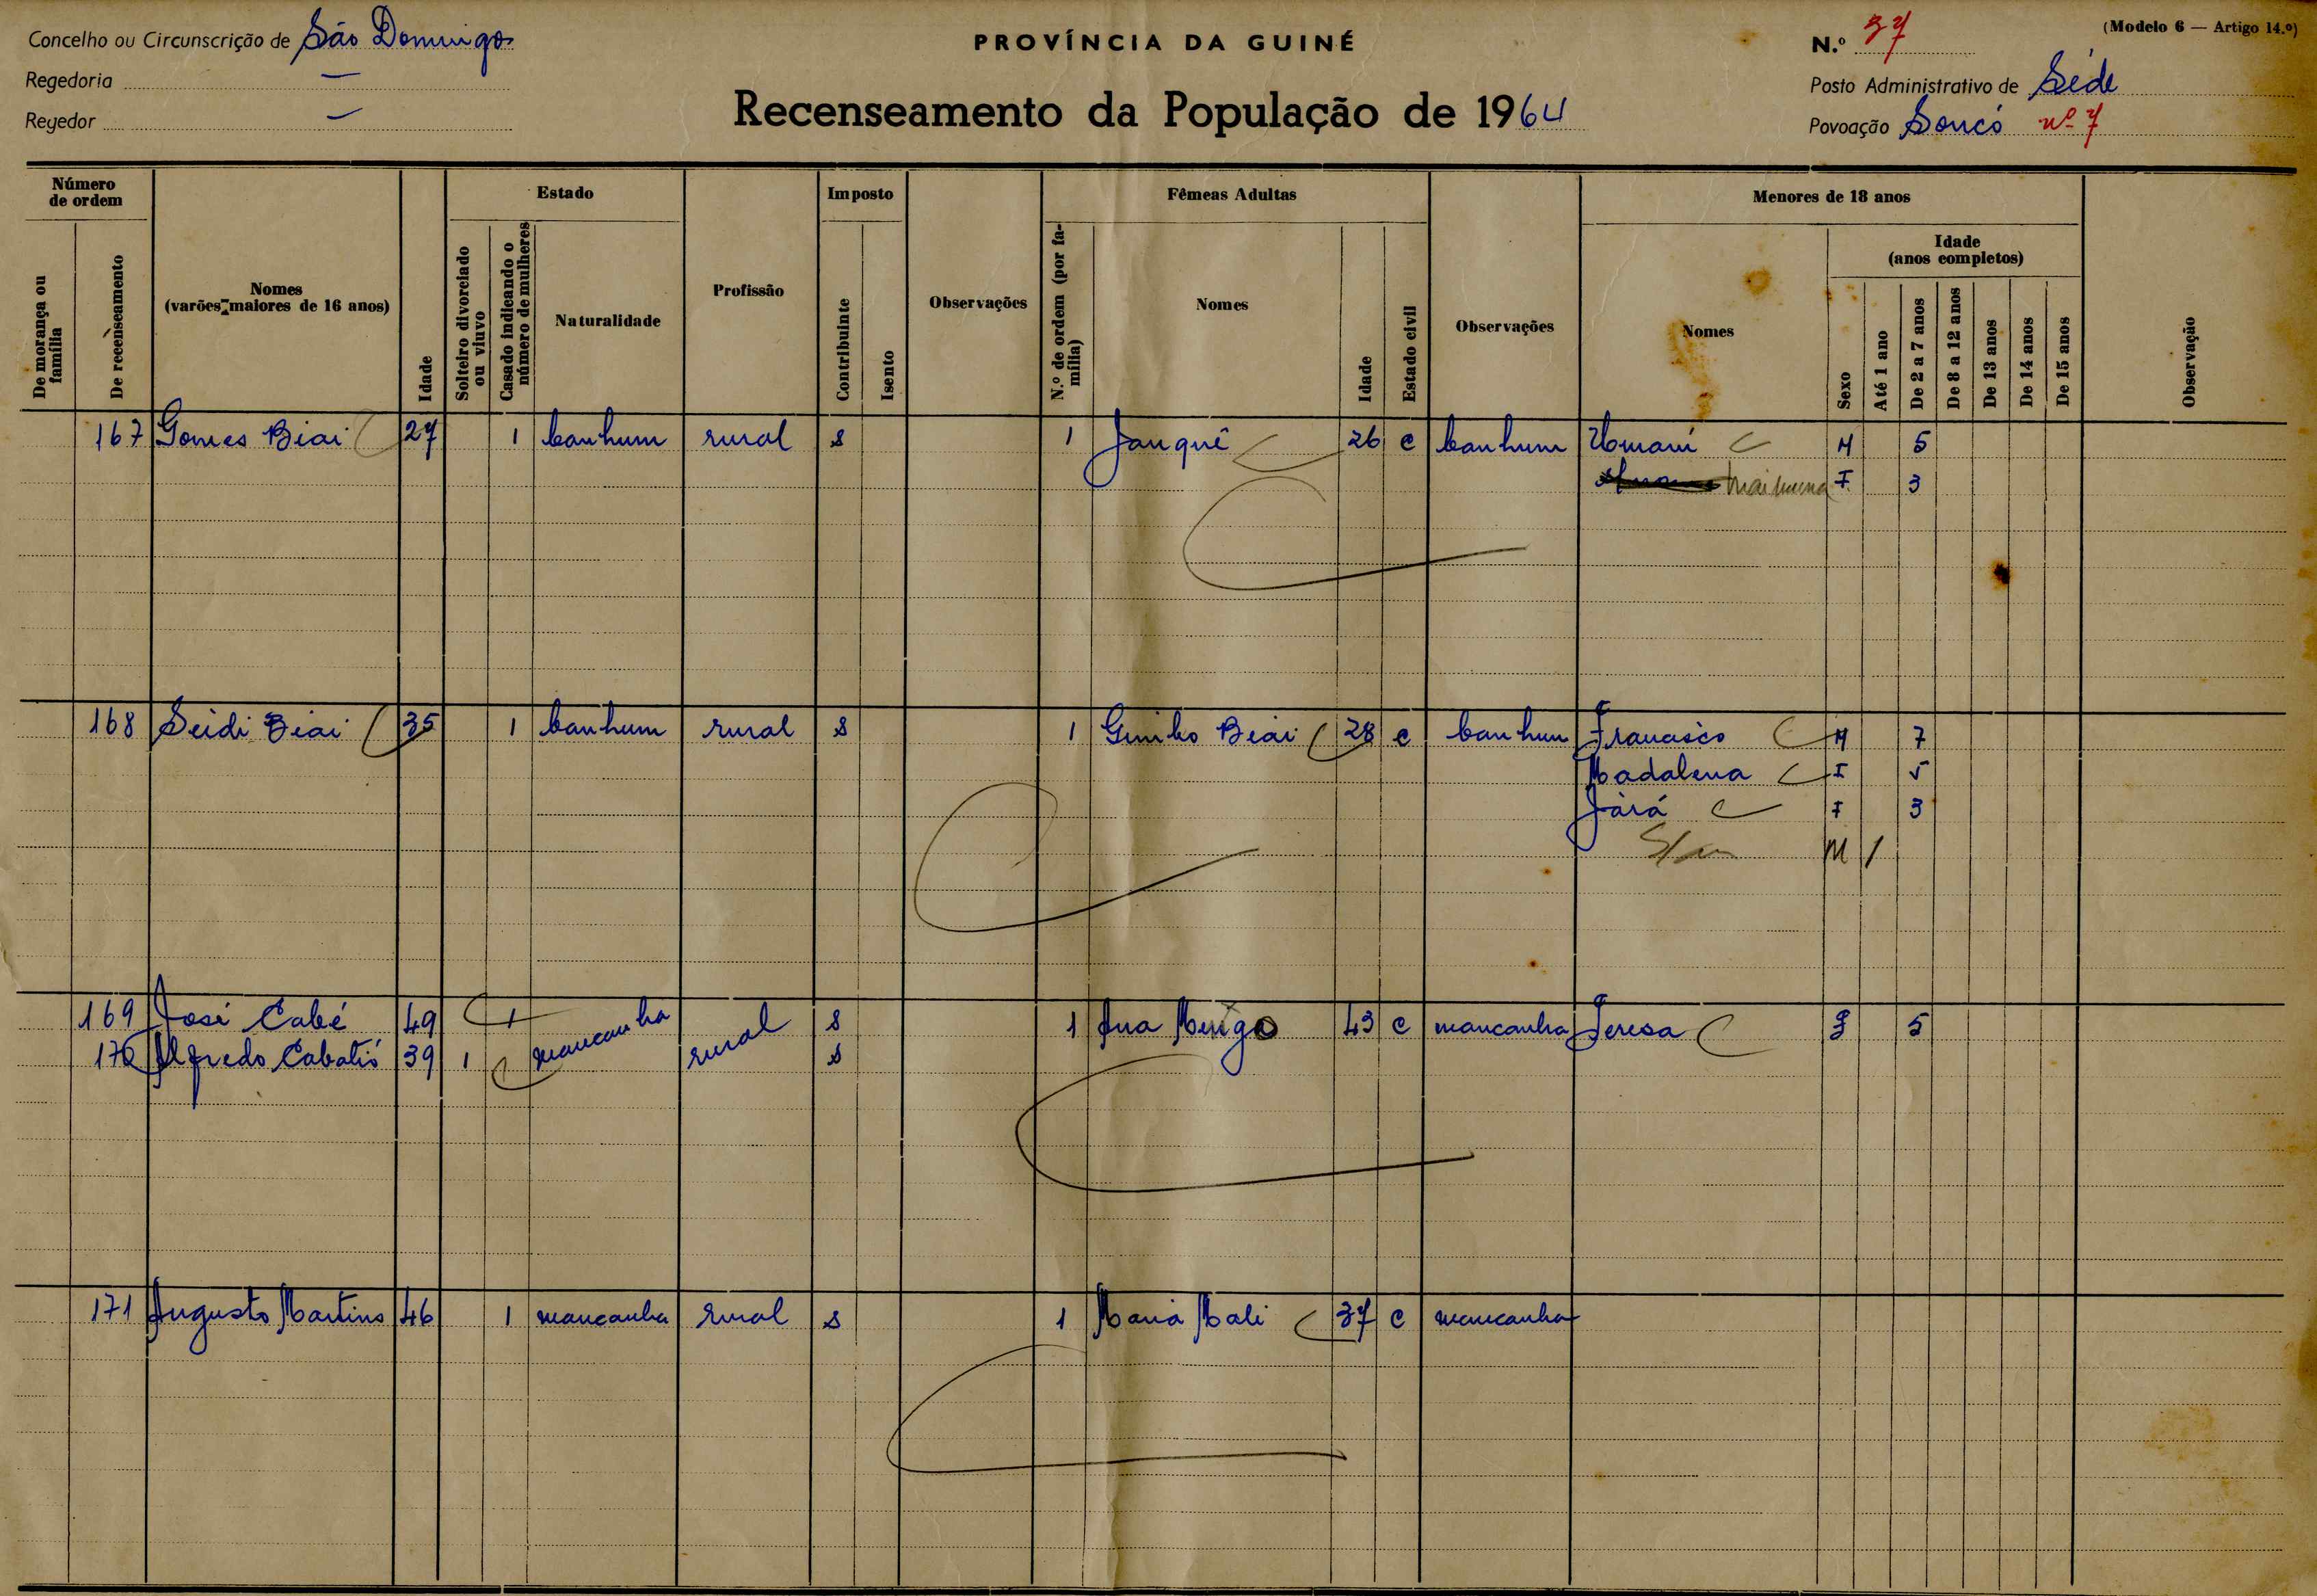 Concelho ou Circunscrição de São Domingos
Regedoria —
Regedor —
PROVÍNCIA DA GUINÉ
Recenseamento da População de 1964
(Modelo 6 — Artigo 14.º)
N.º 37
Posto Administrativo de Séde
Povoação Soncó nº 7
Número de ordem
De morança ou família
De recenseamento
Nomes
(varões maiores de 16 anos)
Idade
Estado
Solteiro divorciado ou viuvo
Casado indicando o número de mulheres
Naturalidade
Profissão
Imposto
Contribuinte
Isento
Observações
Fêmeas Adultas
N.º de ordem (por família)
Nomes
Idade
Estado civil
Observações
Menores de 18 anos
Nomes
Idade
(anos completos)
Sexo
Até 1 ano
De 2 a 7 anos
De 8 a 12 anos
De 13 anos
De 14 anos
De 15 anos
Observação
167 Gomes Biai 27 1 banhum rural s 1 Janquê 26 c banhum Umarú M 5
F 3
168 Seidi Biai 35 1 banhum rural s 1 Biai 28 c banhum Francisco M 7
Madalena F 5
Járá F 3
S/n M 1
169 José Cabé 49 1 mancanha rural s 1 Ana 43 c mancanha Teresa F 5
170 Alfredo Cabatió 39 1 s
171 Augusto Martins 46 1 mancanha rural s 1 Maria Mali 37 c mancanha